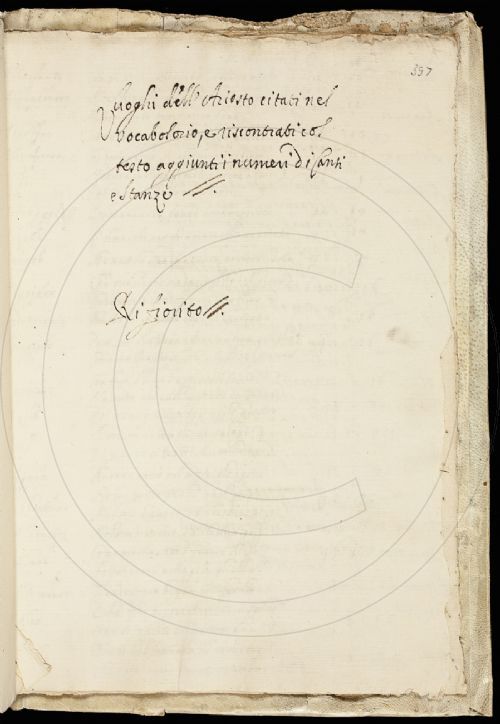 397
Luoghi dell'Ariosto citati nel
Vocabolario, e riscontrati col
testo aggiunti i numeri di canti
e stanze
Rifiorito